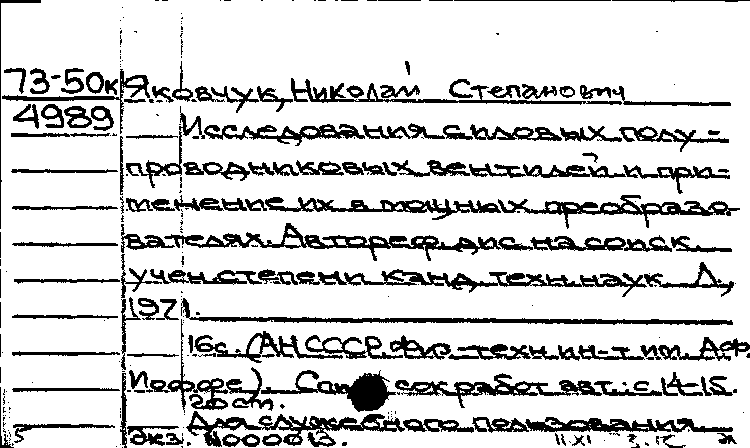 73-50к Яковчук, Николай Степанович
4989 Исследования силовых полу-
проводниковых вентилей и при-
менение их в мощных преобразо-
вателях. Автореф. дис. на соиск.
учен. степени канд. техн. наук. Л.,
1971.
16с. (АН СССР. Физ.-техн. ин-т им. А.Ф.
Иоффе). Список работ авт.: с. 14-15.
Для служебного пользования
Экз. №000013.